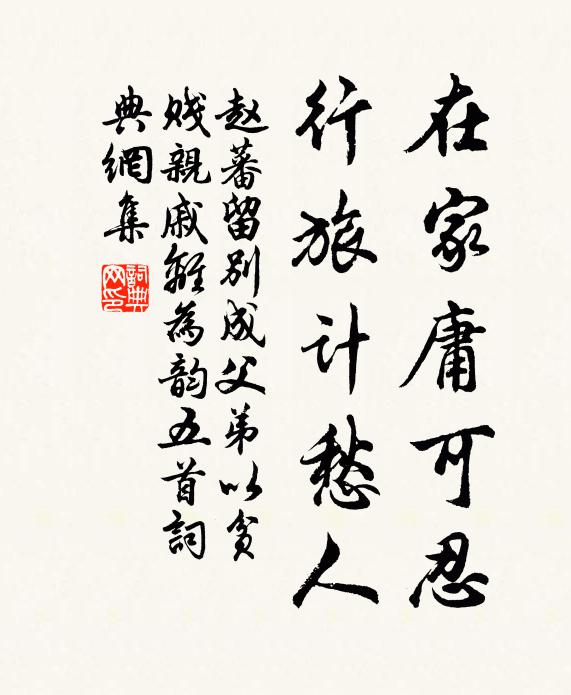 在家庸可忍
行旅计愁人
赵蕃留别成父弟以贫
贱亲戚離為韵五首词
典網集
詞典
网印